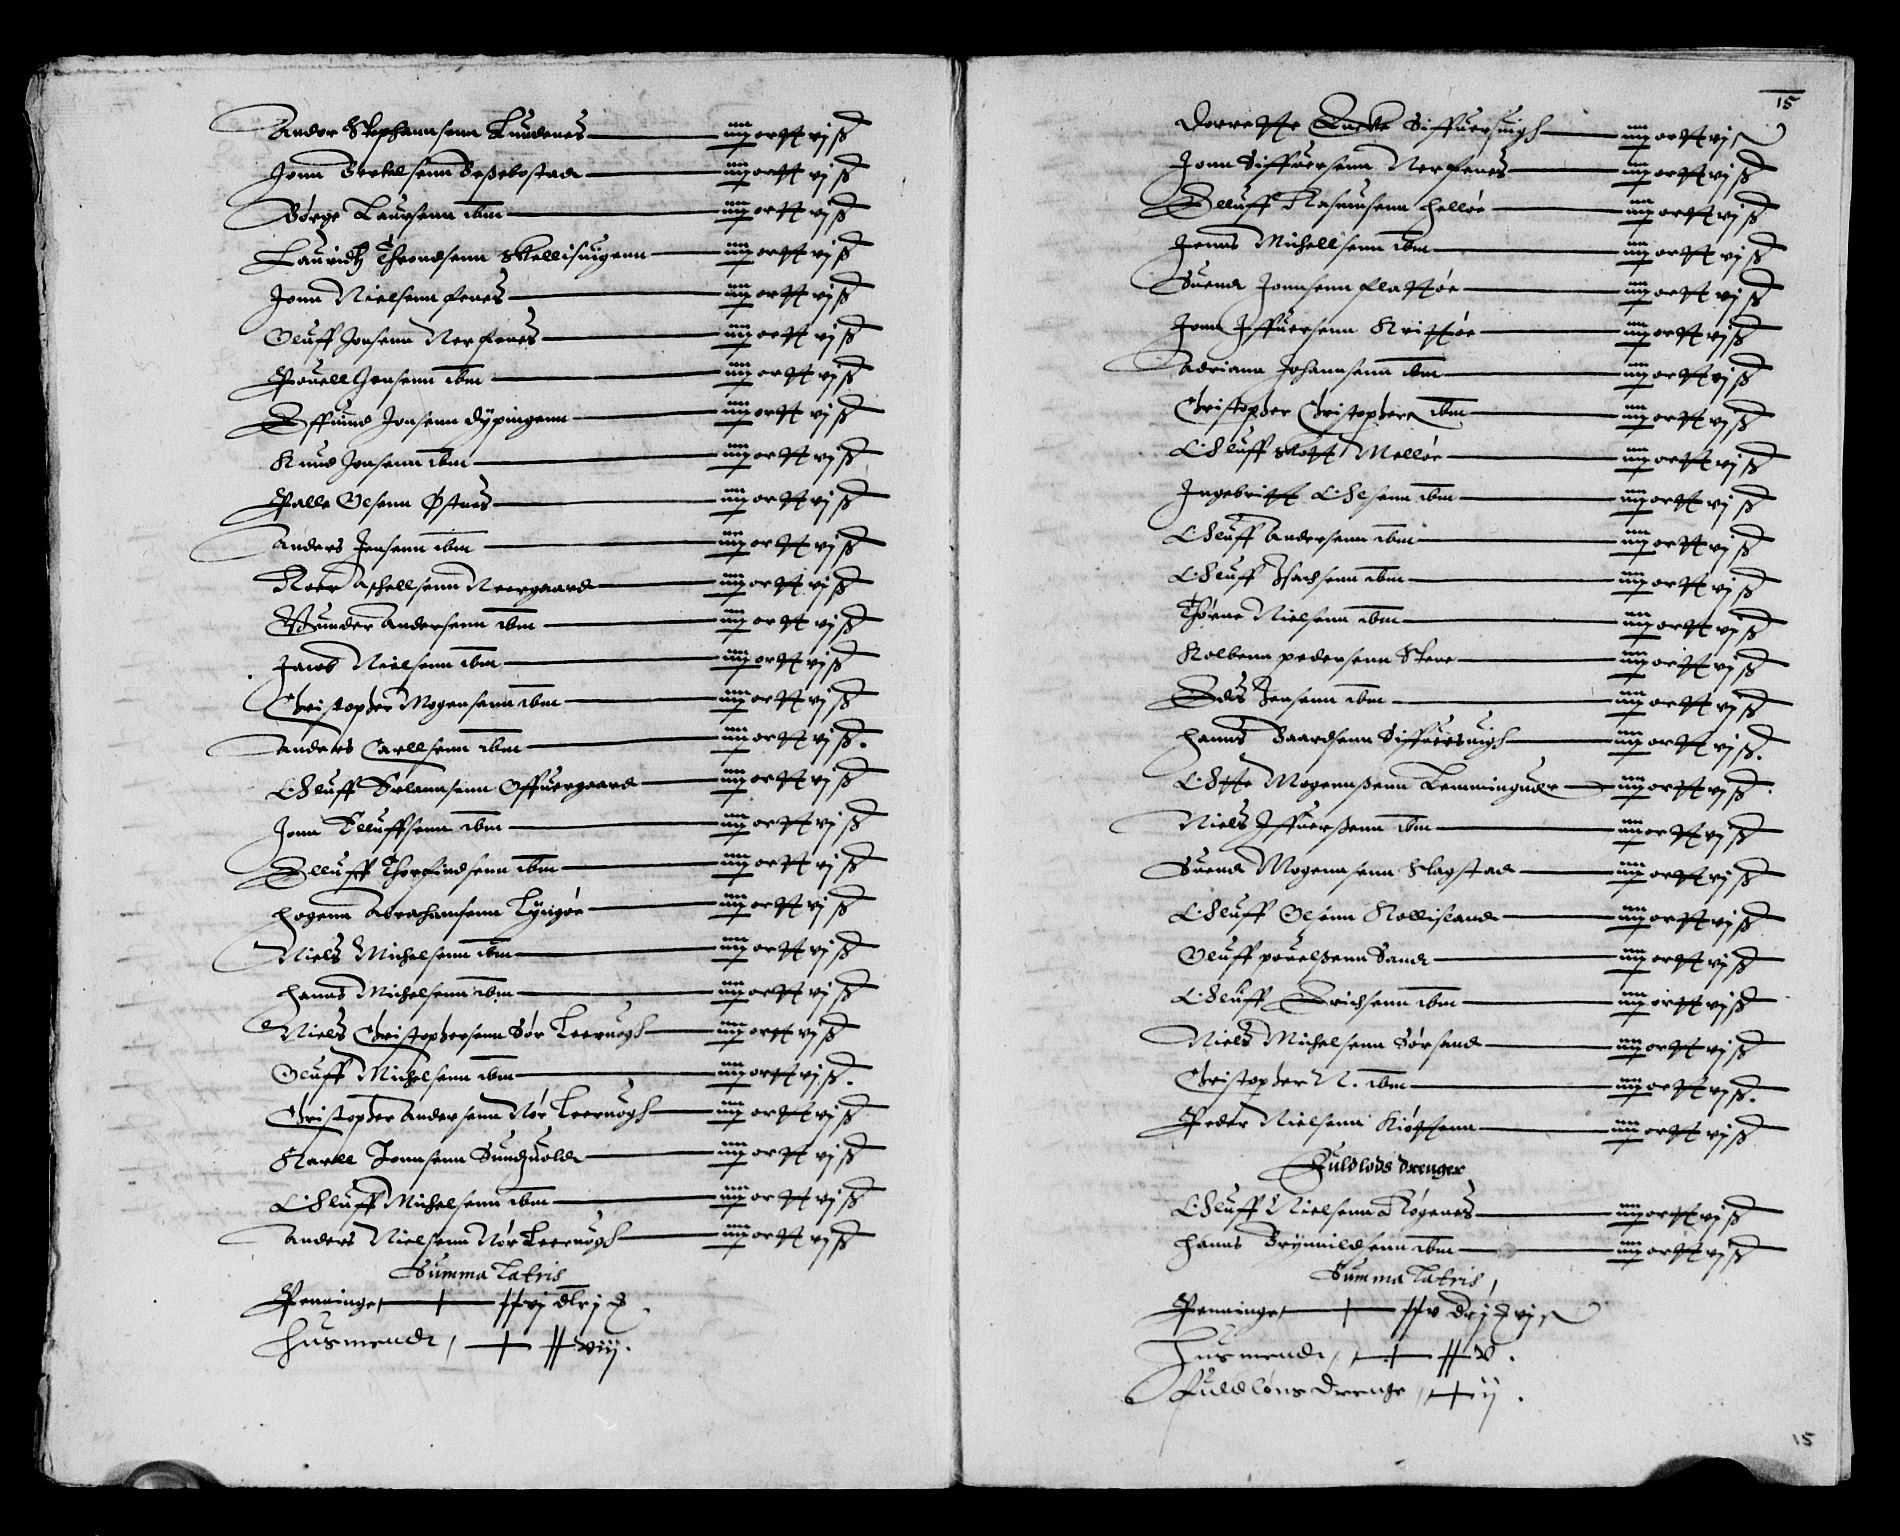 Anders Stephannsenn Tunnenes — iiij ortt vj ß
Jonn Berthelsenn Besebostad — iiij ortt vj ß
Børge Laursenn ibm — iiij ortt vj ß
Lauridtz Throndsenn Skellisuigenn — iiij ortt vj ß
Jonn Nielsenn Fenes — iiij ortt vj ß
Oluff Jonsenn Nerfenes — iiij ortt vj ß
Pouell Jensenn ibm — iiij ortt vj ß
Effuind Jonsenn Dypingenn — iiij ortt vj ß
Knud Jonsenn ibm — iiij ortt vj ß
Palle Olsenn Østnes — iiij ortt vj ß
Anders Jensenn ibm — iiij ortt vj ß
Roer Aschellsenn Neergaard — iiij ortt vj ß
Gunder Andersenn ibm — iiij ortt vj ß
Jacob Nielsenn ibm — iiij ortt vj ß
Christopher Mogensenn ibm — iiij ortt vj ß
Anders Carllsenn ibm — iiij ortt vj ß.
Oluff Erlannsenn Offuergaard — iiij ortt vj ß
Jonn Elluffsenn ibm — iiij ortt vj ß
Elluff Thorfindsenn ibm — iiij ortt vj ß
Hogenn Abrahamsenn Lyngøe — iiij ortt vj ß
Niels Michelsenn ibm — iiij ortt vj ß
Hanns Michelsenn ibm — iiij ortt vj ß
Niels Christophersenn Sør Leeruogh — iiij ortt vj ß
Oluff Michelsenn ibm — iiij ortt vj ß.
Christopher Andersenn Nør Leeruogh — iiij ortt vj ß
Karll Jonnsenn Sundzuold — iiij ortt vj ß
Oluff Michelsenn ibm — iiij ortt vj ß
Anders Nielsenn Nør Leeruogh — iiij ortt vj ß
Summa Latris
Penninge
Husmend, — xxviij.
15
Dorrette Siffuersuigh — iiij ortt vj ß
Jonn Siffuersenn Nerfenes — iiij ortt vj ß
Elluff Rasmusenn Helløe — iiij ortt vj ß
Jenns Michellsenn ibm — iiij ortt vj ß
Suend Jonnsenn Flattøe — iiij ortt vj ß
Jonn Iffuersenn Krittøe — iiij ortt vj ß
Adriann Johannsenn ibm — iiij ortt vj ß
Christopher Christophers ibm — iiij ortt vj ß
Oluff Skott Melløe — iiij ortt vj ß
Ingebritt Olsenn ibm — iiij ortt vj ß
Oluff Andersenn ibm — iiij ortt vj ß
Oluff Isachsenn ibm — iiij ortt vj ß
Thørne Nielsenn ibm — iiij ortt vj ß
Kolbenn Pedersenn Stene — iiij ortt vj ß
Eds Jensenn ibm — iiij ortt vj ß
Hanns Baardsenn Siffuersuigh — iiij ortt vj ß.
Otte Mogennßenn Lemminguder — iiij ortt vj ß.
Niels Iffuerßenn ibm — iiij ortt vj ß
Suend Mogennsenn Slagstad — iiij ortt vj ß
Oluff Olsenn Rollisland — iiij ortt vj ß
Oluff Pouelßenn Sand — iiij ortt vj ß
Oluff Erichsenn ibm — iiij ortt vj ß
Niels Michelsenn Sørsand — iiij ortt vj ß
Christopher N. ibm — iiij ortt vj ß.
Peder Nielsenn Kiøttenn — iiij ortt vj ß
Fuldlods drenger
Oluff Nielsenn Røgenes — iiij ortt vj ß
Hanns Brynnildsenn ibm — iiij ortt vj ß
Summa Latris,
Penninge
Husmend, — xxv.
Fuldløns Drenge, — ij.
15